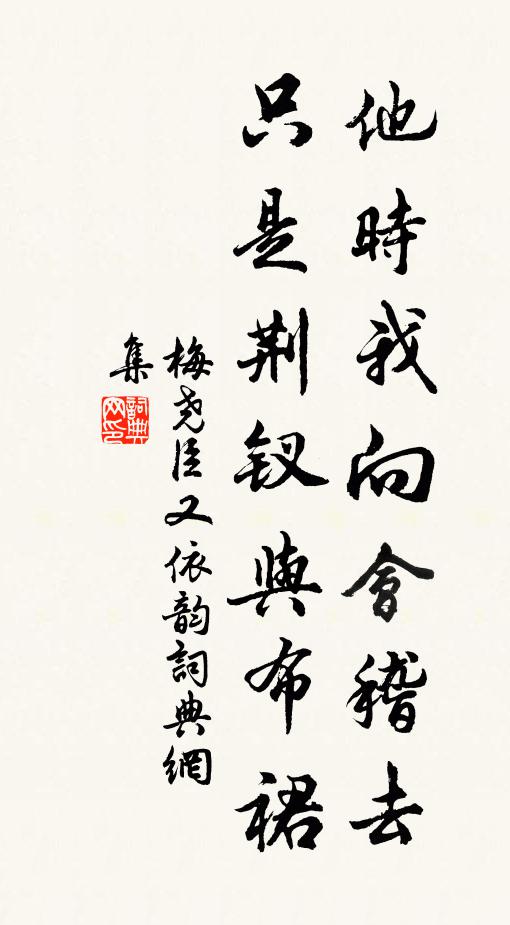 他時我向會稽去
只是荆釵與布裙
梅尧臣又依韵詞典網
集
詞典网印